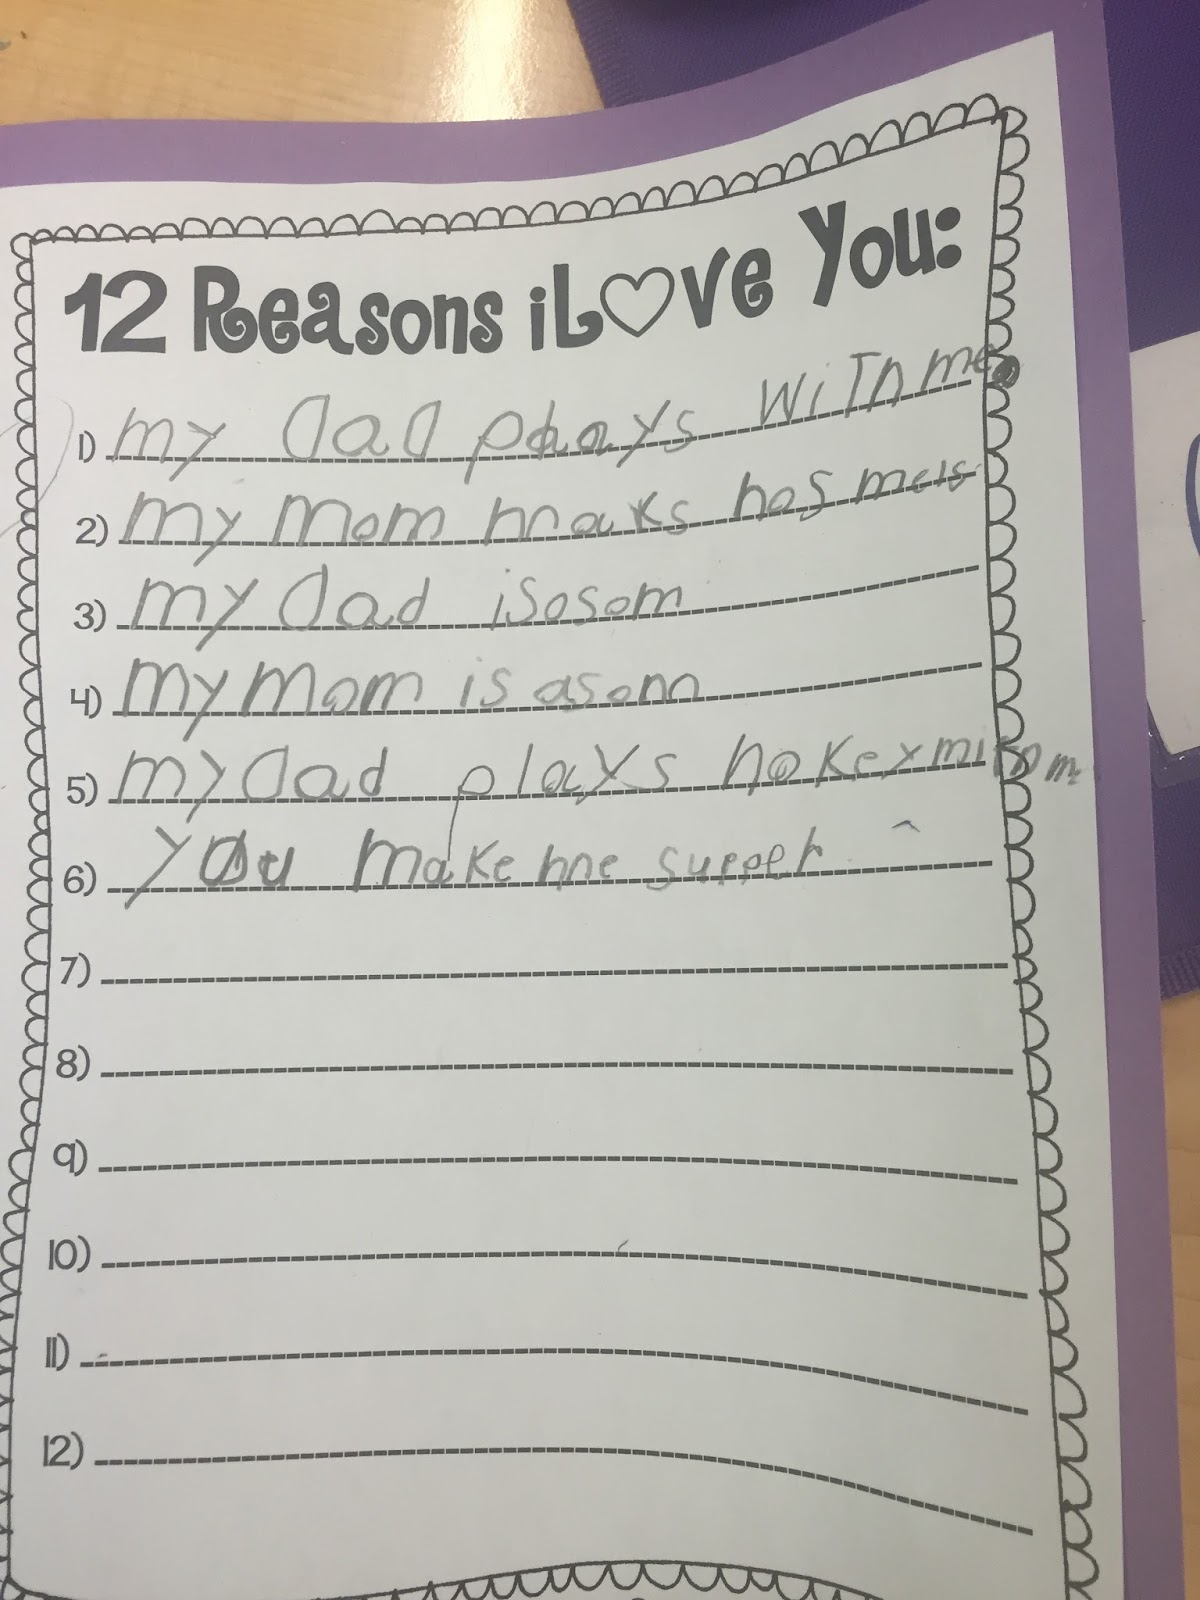 12 Reasons iLove You:
1) my dad plays with me.
2) my mom maks has mels
3) my dad isosom
4) my mom is asom
5) my dad plays hokey
6) you make me supper
7)
8)
9)
10)
11)
12)